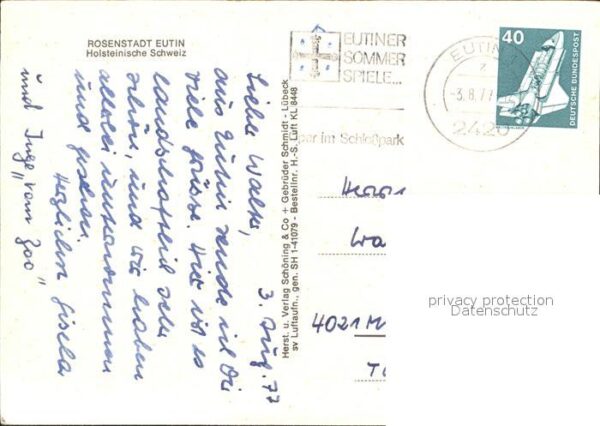 ROSENSTADT EUTIN
Holsteinische Schweiz
3. Aug. 77
Lieber Walter,
aus Eutin sende ich Dir
viele Grüsse. Hier ist es
landschaftlich sehr
schön, und wir haben
allerlei unternommen
und gesehen.
Herzlichst Gisela
und Inge "vom Zoo"
Herst. u. Verlag Schöning & Co + Gebrüder Schmidt - Lübeck
sv Luftaufn., gen. SH 1-41079 - Bestellnr. H.-S. Luft KL 8448
EUTINER
SOMMER
SPIELE...
Oper im Schloßpark
EUTIN 1
z
-3.8.77
2420
40
DEUTSCHE BUNDESPOST
Herrn
Wa
4021 M
privacy protection
Datenschutz